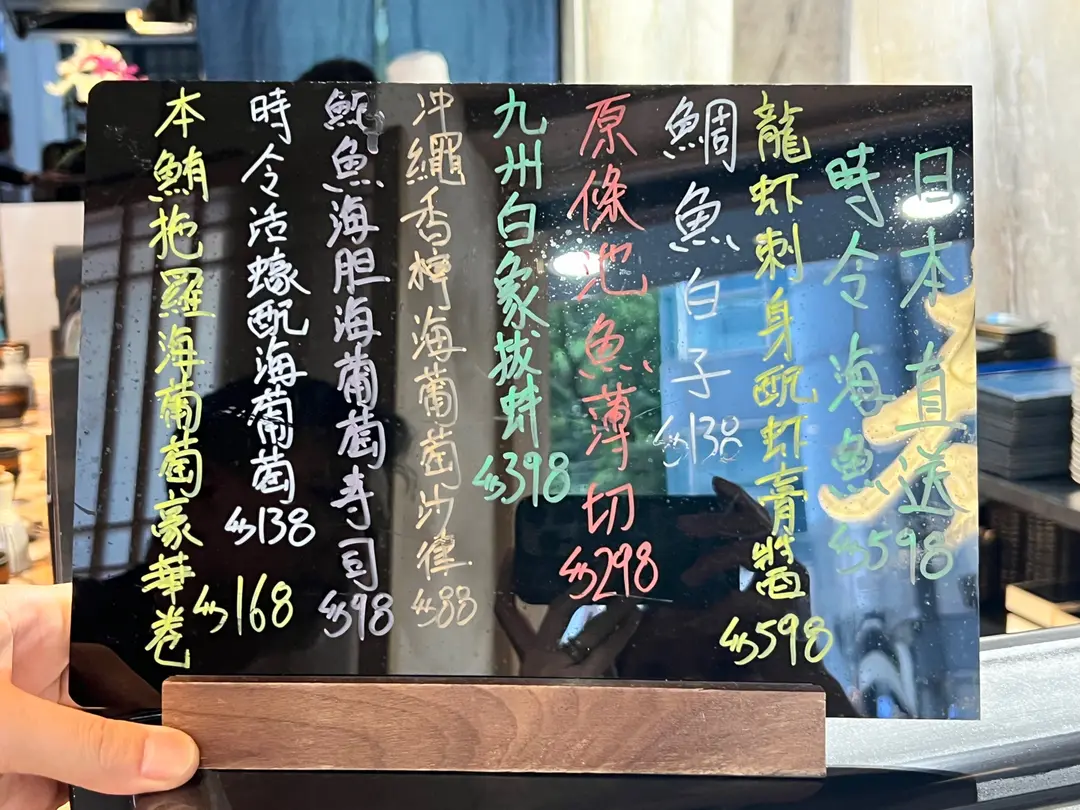 日本直送
時令海魚 $598
龍虾刺身配虾膏醬 $598
鯛魚白子 $138
原條池魚薄切 $298
九州白象拔蚌 $398
沖繩香檸海葡萄沙律 $88
魚海胆海葡萄寿司 $98
時令活蠔配海葡萄 $138
本鮪拖羅海葡萄豪華卷 $168